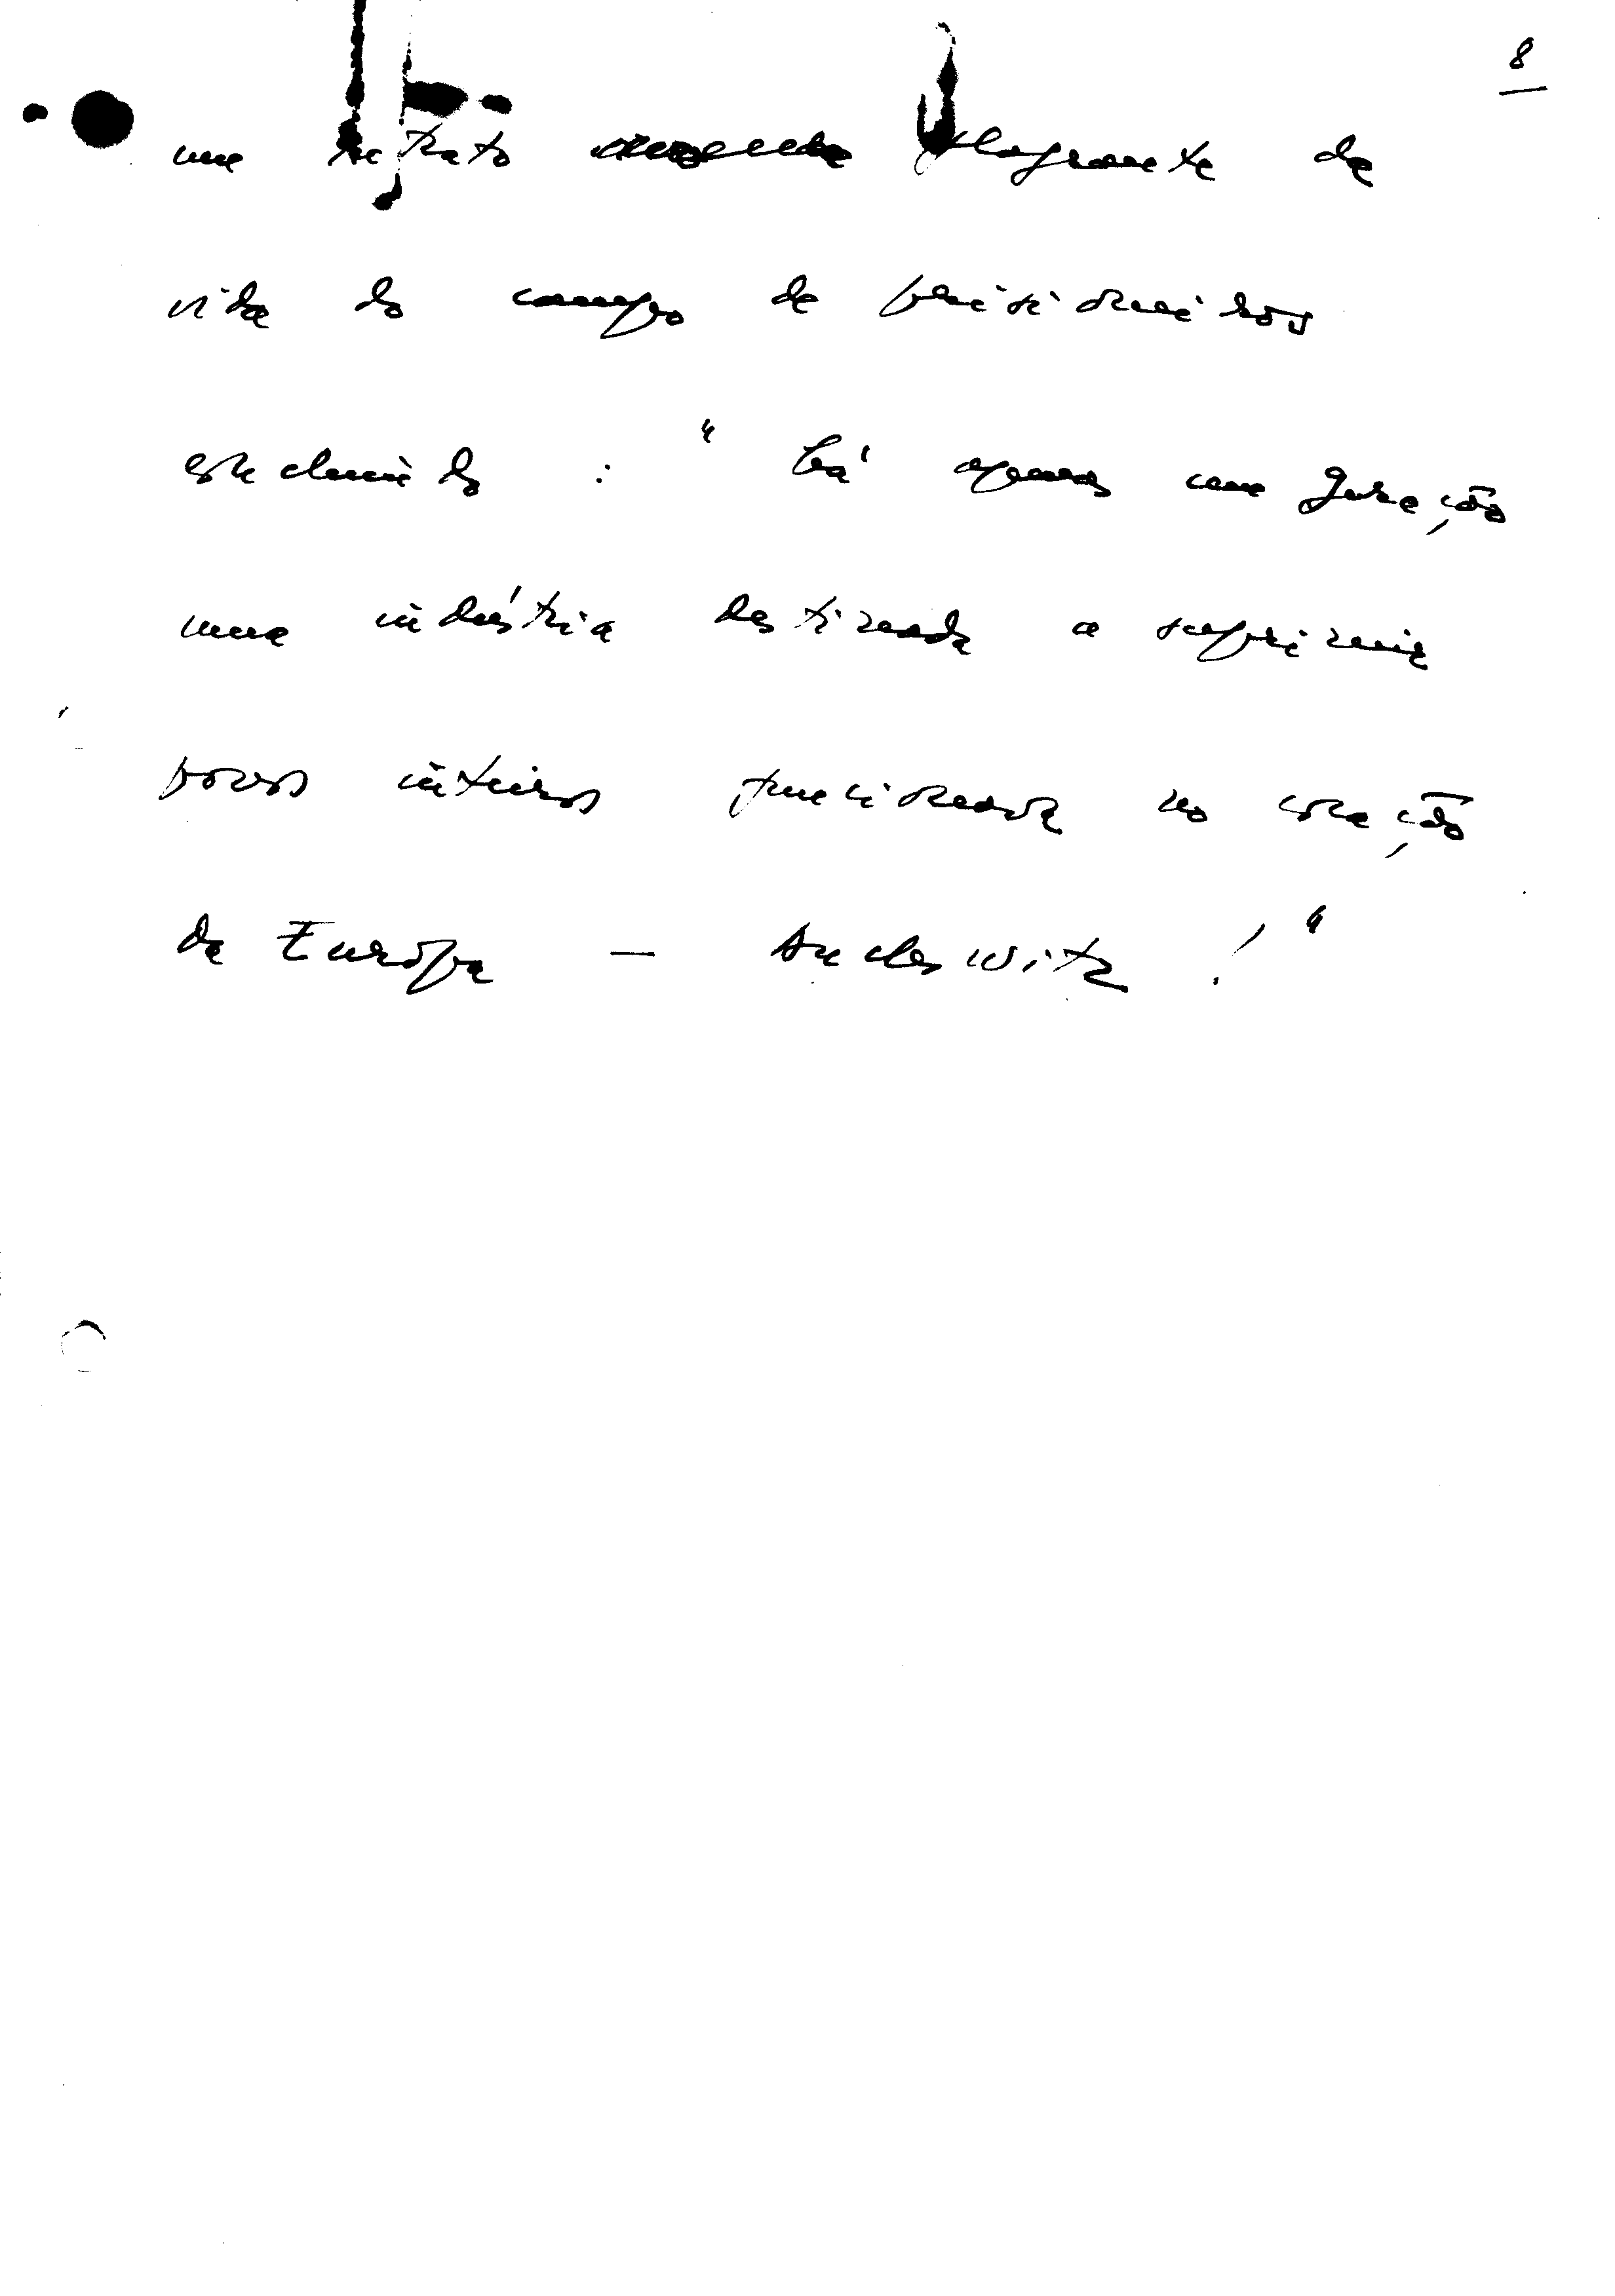 8
um retrato flagrante da
vida do campo de prisioneiros
extermínio : " há apenas uma geração
uma indústria destinada a suprimir
povos inteiros funcionava no coração
da Europa — Auchswitz ! "